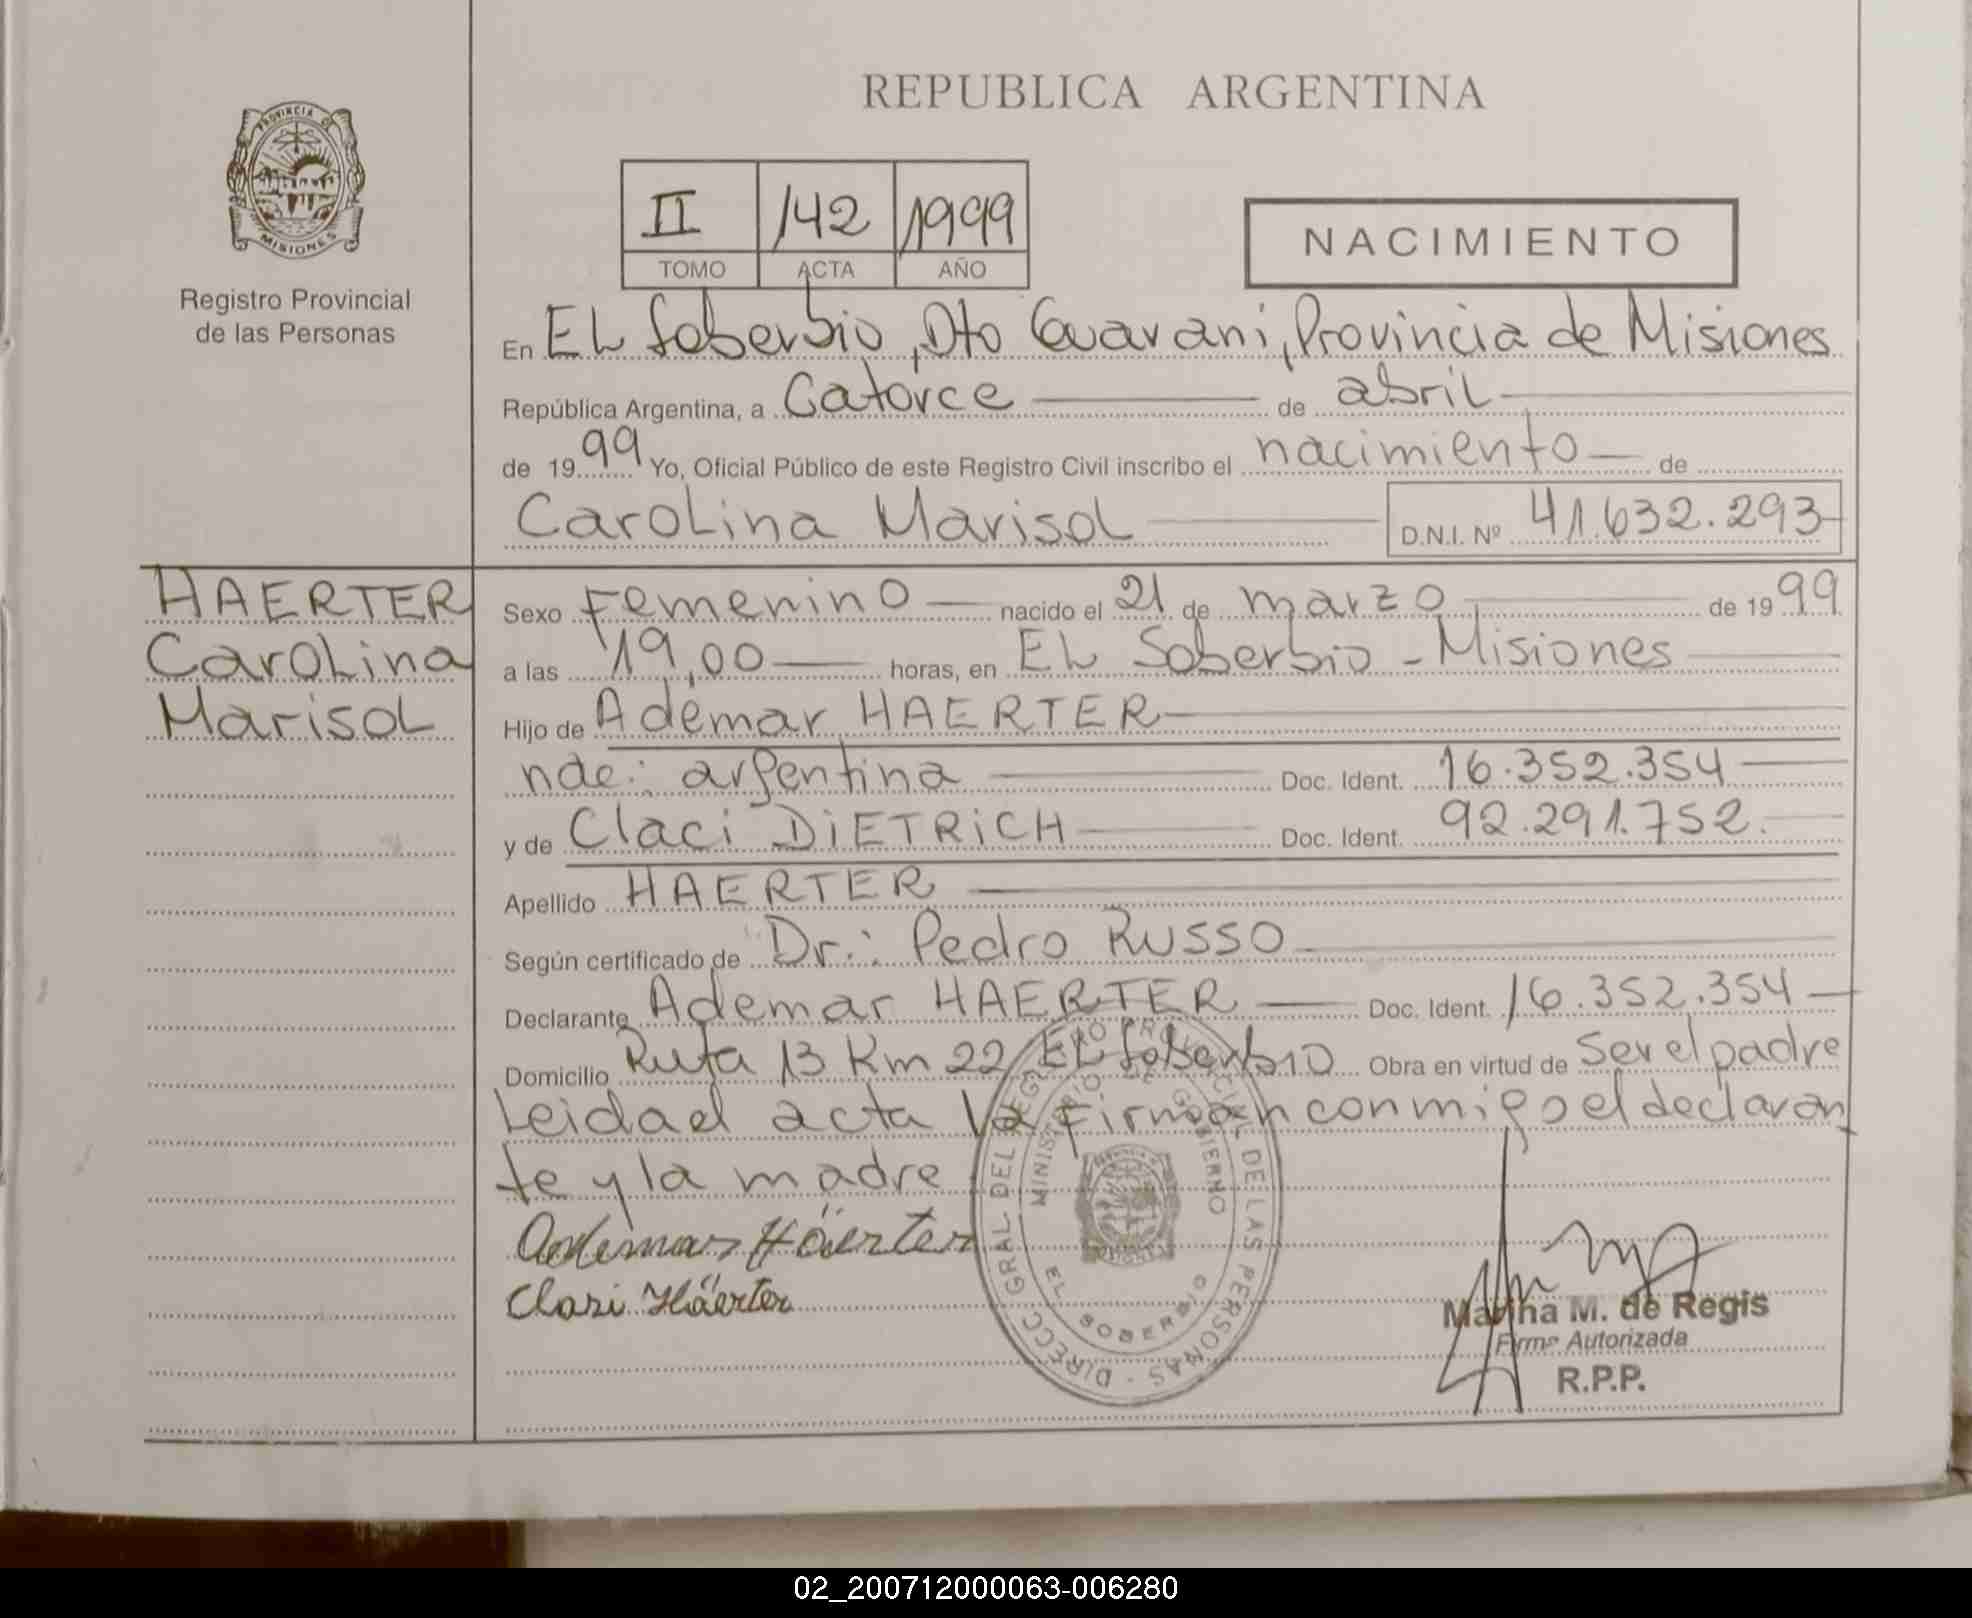 REPUBLICA ARGENTINA
PROVINCIA DE
MISIONES
Registro Provincial
de las Personas
II 142 1999
TOMO ACTA AÑO
NACIMIENTO
En EL Soberbio, Dto Guarani, Provincia de Misiones
República Argentina, a Catorce de abril
de 1999 Yo, Oficial Público de este Registro Civil inscribo el nacimiento de
Carolina Marisol D.N.I. Nº 41.632.293
HAERTER
Carolina
Marisol
Sexo Femenino nacido el 21 de marzo de 1999
a las 19,00 horas, en EL Soberbio - Misiones
Hijo de Ademar HAERTER
nde: argentina Doc. Ident. 16.352.354
y de Claci DiETRiCH Doc. Ident. 92.291.752.
Apellido HAERTER
Según certificado de Dr.: Pedro RUSSO
Declarante Ademar HAERTER Doc. Ident. 16.352.354
Domicilio Ruta 13 Km 22 EL Soberbio Obra en virtud de Ser el padre
Leidad el acta la Firman conmigo el declaran
te y la madre
Ademar Häerter
Clasi Häerter
DIRECC. GRAL DEL REGISTRO PROVINCIAL DE LAS PERSONAS
MINISTERIO DE GOBIERNO
EL SOBERBIO
Marina M. de Regis
Firma Autorizada
R.P.P.
02_200712000063-006280